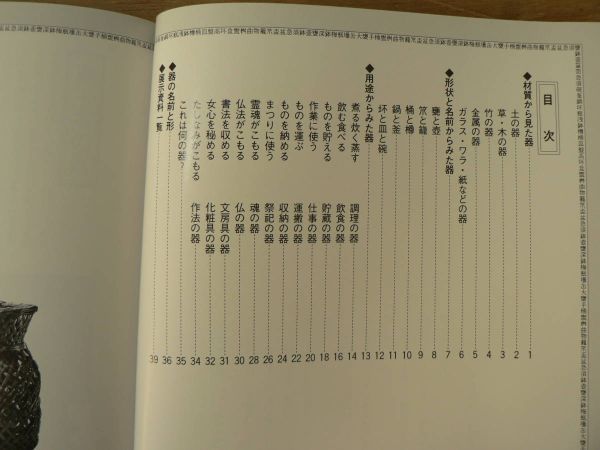 目次
◆材質から見た器 1
土の器 2
草・木の器 3
竹の器 4
金属の器 5
ガラス・ワラ・紙などの器 6
◆形状と名前からみた器 7
甕と壺 8
笊と籠 9
桶と樽 10
鍋と釜 11
坏と皿と碗 12
◆用途からみた器 13
煮る炊く蒸す 調理の器 14
飲む食べる 飲食の器 16
ものを貯える 貯蔵の器 18
作業に使う 仕事の器 20
ものを運ぶ 運搬の器 22
ものを納める 収納の器 24
まつりに使う 祭祀の器 26
霊魂がこもる 魂の器 28
仏法がこもる 仏の器 30
書法を収める 文房具の器 31
女心を秘める 化粧具の器 32
たしなみがこもる 作法の器 34
これは何の器? 35
◆器の名前と形 36
◆展示資料一覧 39